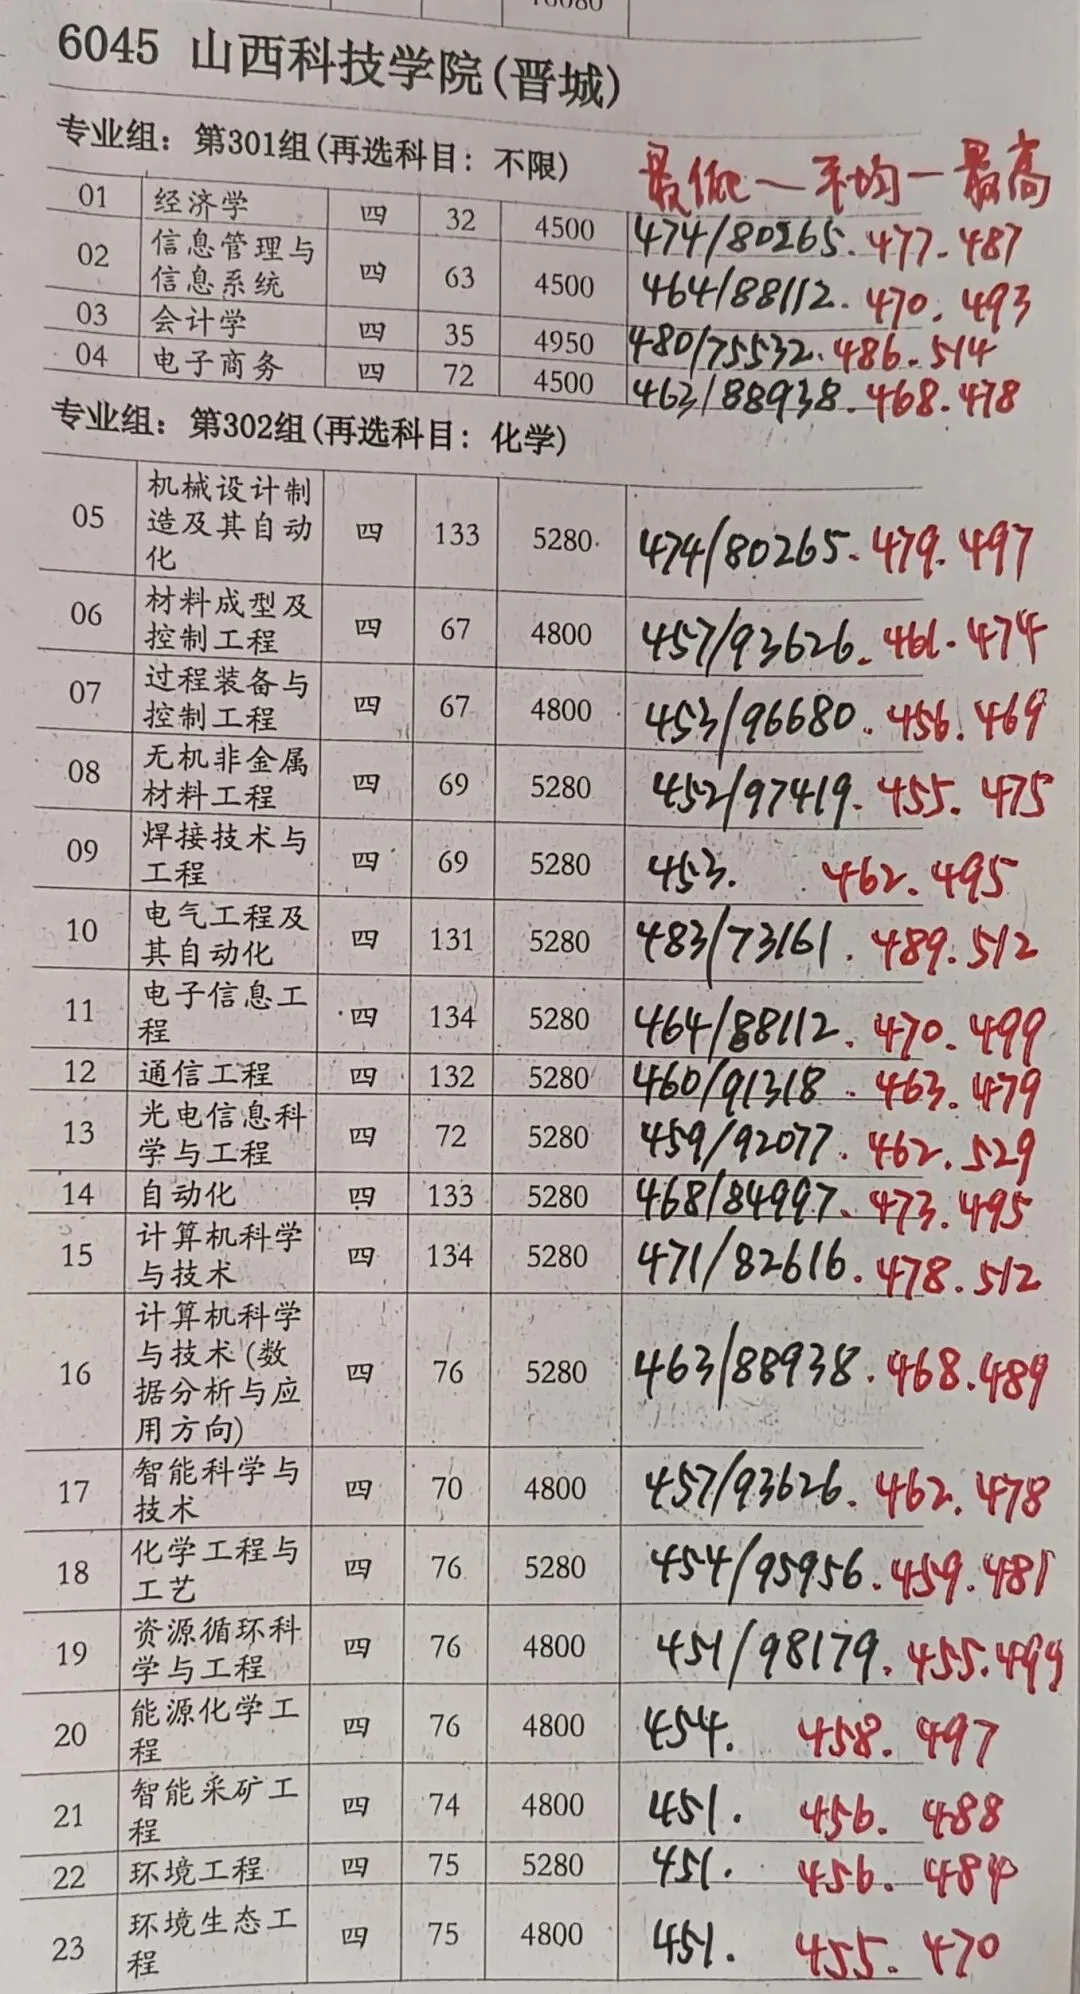 6045 山西科技学院(晋城)
专业组：第301组(再选科目：不限) 最低—平均—最高
01 经济学 四 32 4500 474/80265.477.487
02 信息管理与
信息系统 四 63 4500 464/88112.470.493
03 会计学 四 35 4950 480/75532.486.514
04 电子商务 四 72 4500 463/88938.468.478
专业组：第302组(再选科目：化学)
05 机械设计制
造及其自动
化 四 133 5280 474/80265.479.497
06 材料成型及
控制工程 四 67 4800 457/93626.461.474
07 过程装备与
控制工程 四 67 4800 453/96680.456.469
08 无机非金属
材料工程 四 69 5280 452/97419.455.475
09 焊接技术与
工程 四 69 5280 453. 462.495
10 电气工程及
其自动化 四 131 5280 483/73161.489.512
11 电子信息工
程 四 134 5280 464/88112.470.499
12 通信工程 四 132 5280 460/91318.463.479
13 光电信息科
学与工程 四 72 5280 459/92077.462.529
14 自动化 四 133 5280 468/84997.473.495
15 计算机科学
与技术 四 134 5280 471/82616.478.512
16 计算机科学
与技术(数
据分析与应
用方向) 四 76 5280 463/88938.468.489
17 智能科学与
技术 四 70 4800 457/93626.462.478
18 化学工程与
工艺 四 76 5280 454/95956.459.481
19 资源循环科
学与工程 四 76 4800 451/98179.455.499
20 能源化学工
程 四 76 4800 454. 458.497
21 智能采矿工
程 四 74 4800 451. 456.488
22 环境工程 四 75 5280 451. 456.
23 环境生态工
程 四 75 4800 451. 455.470